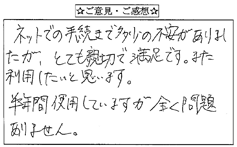 ☆ご意見・ご感想☆
ネットでの手続きで多少の不安がありまし
たが、とても親切で満足です。また
利用したいと思います。
半年間使用していますが全く問題
ありません。